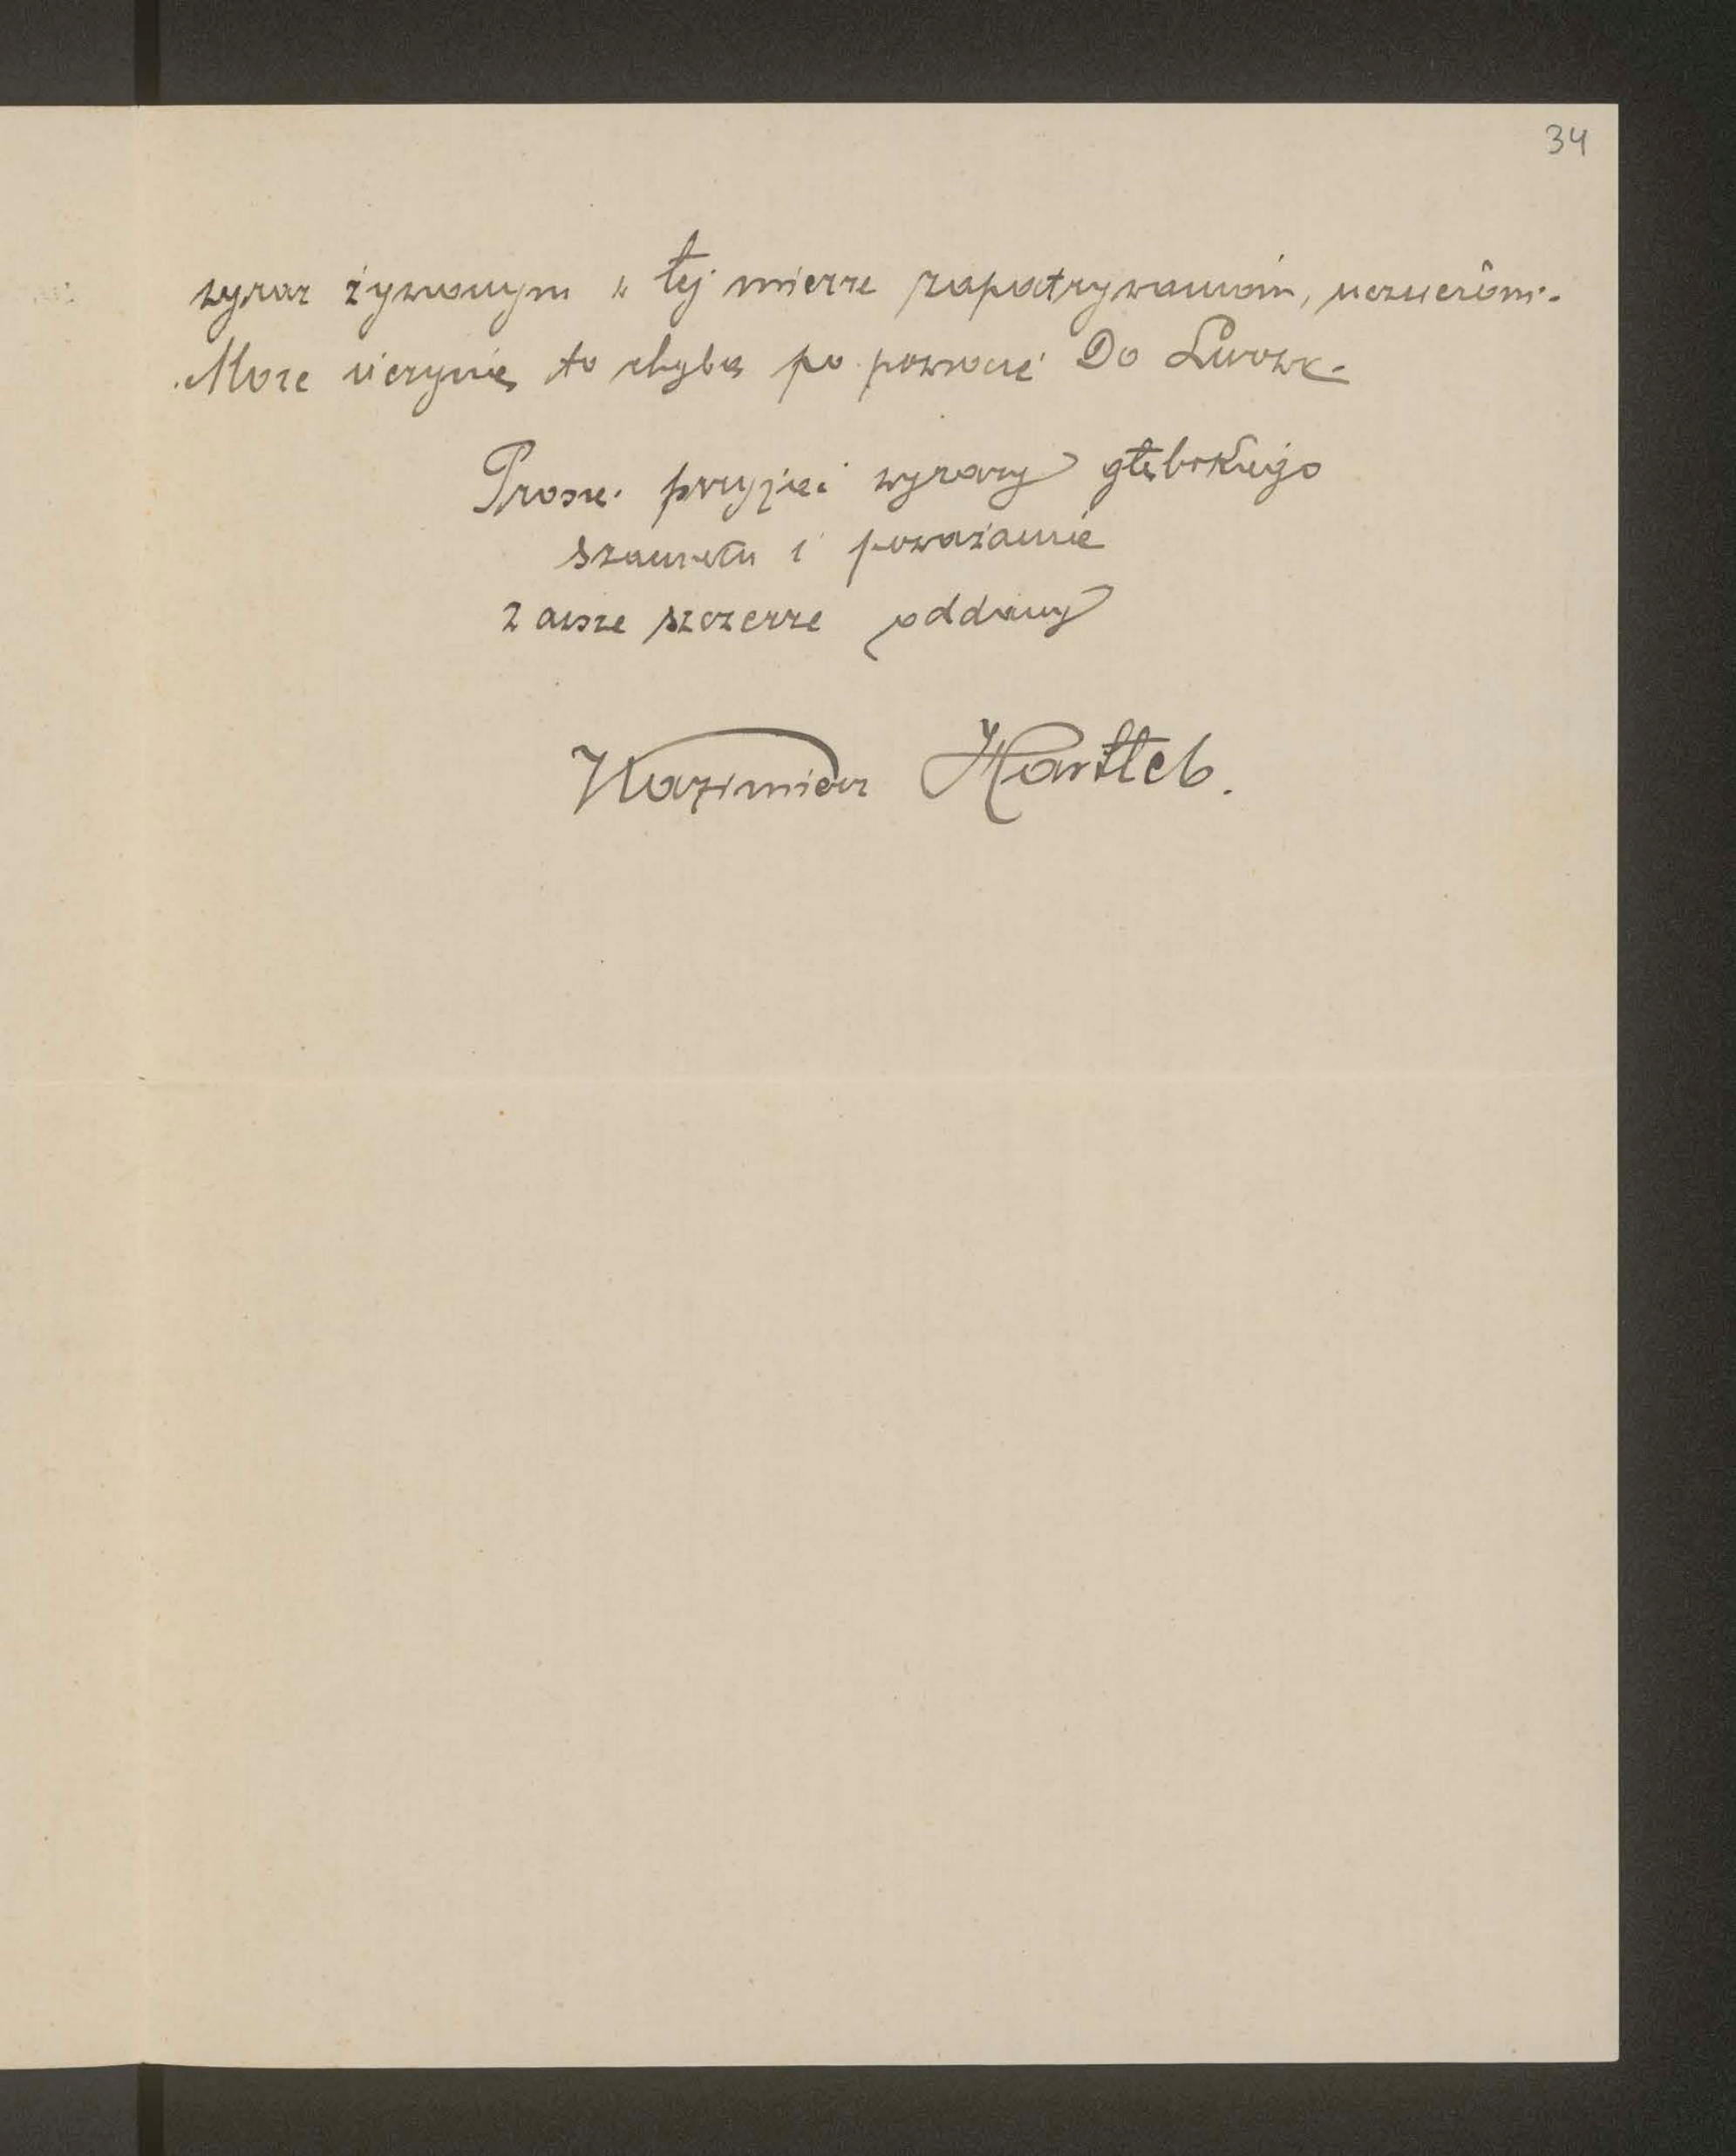 34
wyraz żywionym w tej mierze zapatrywaniom, uczuciom.
Może uczynię to chyba po powrocie do Lwowa.
Proszę przyjąć wyrazy głębokiego
szacunku i poważanie
zawsze szczerze oddany
Kazimierz Hartleb.